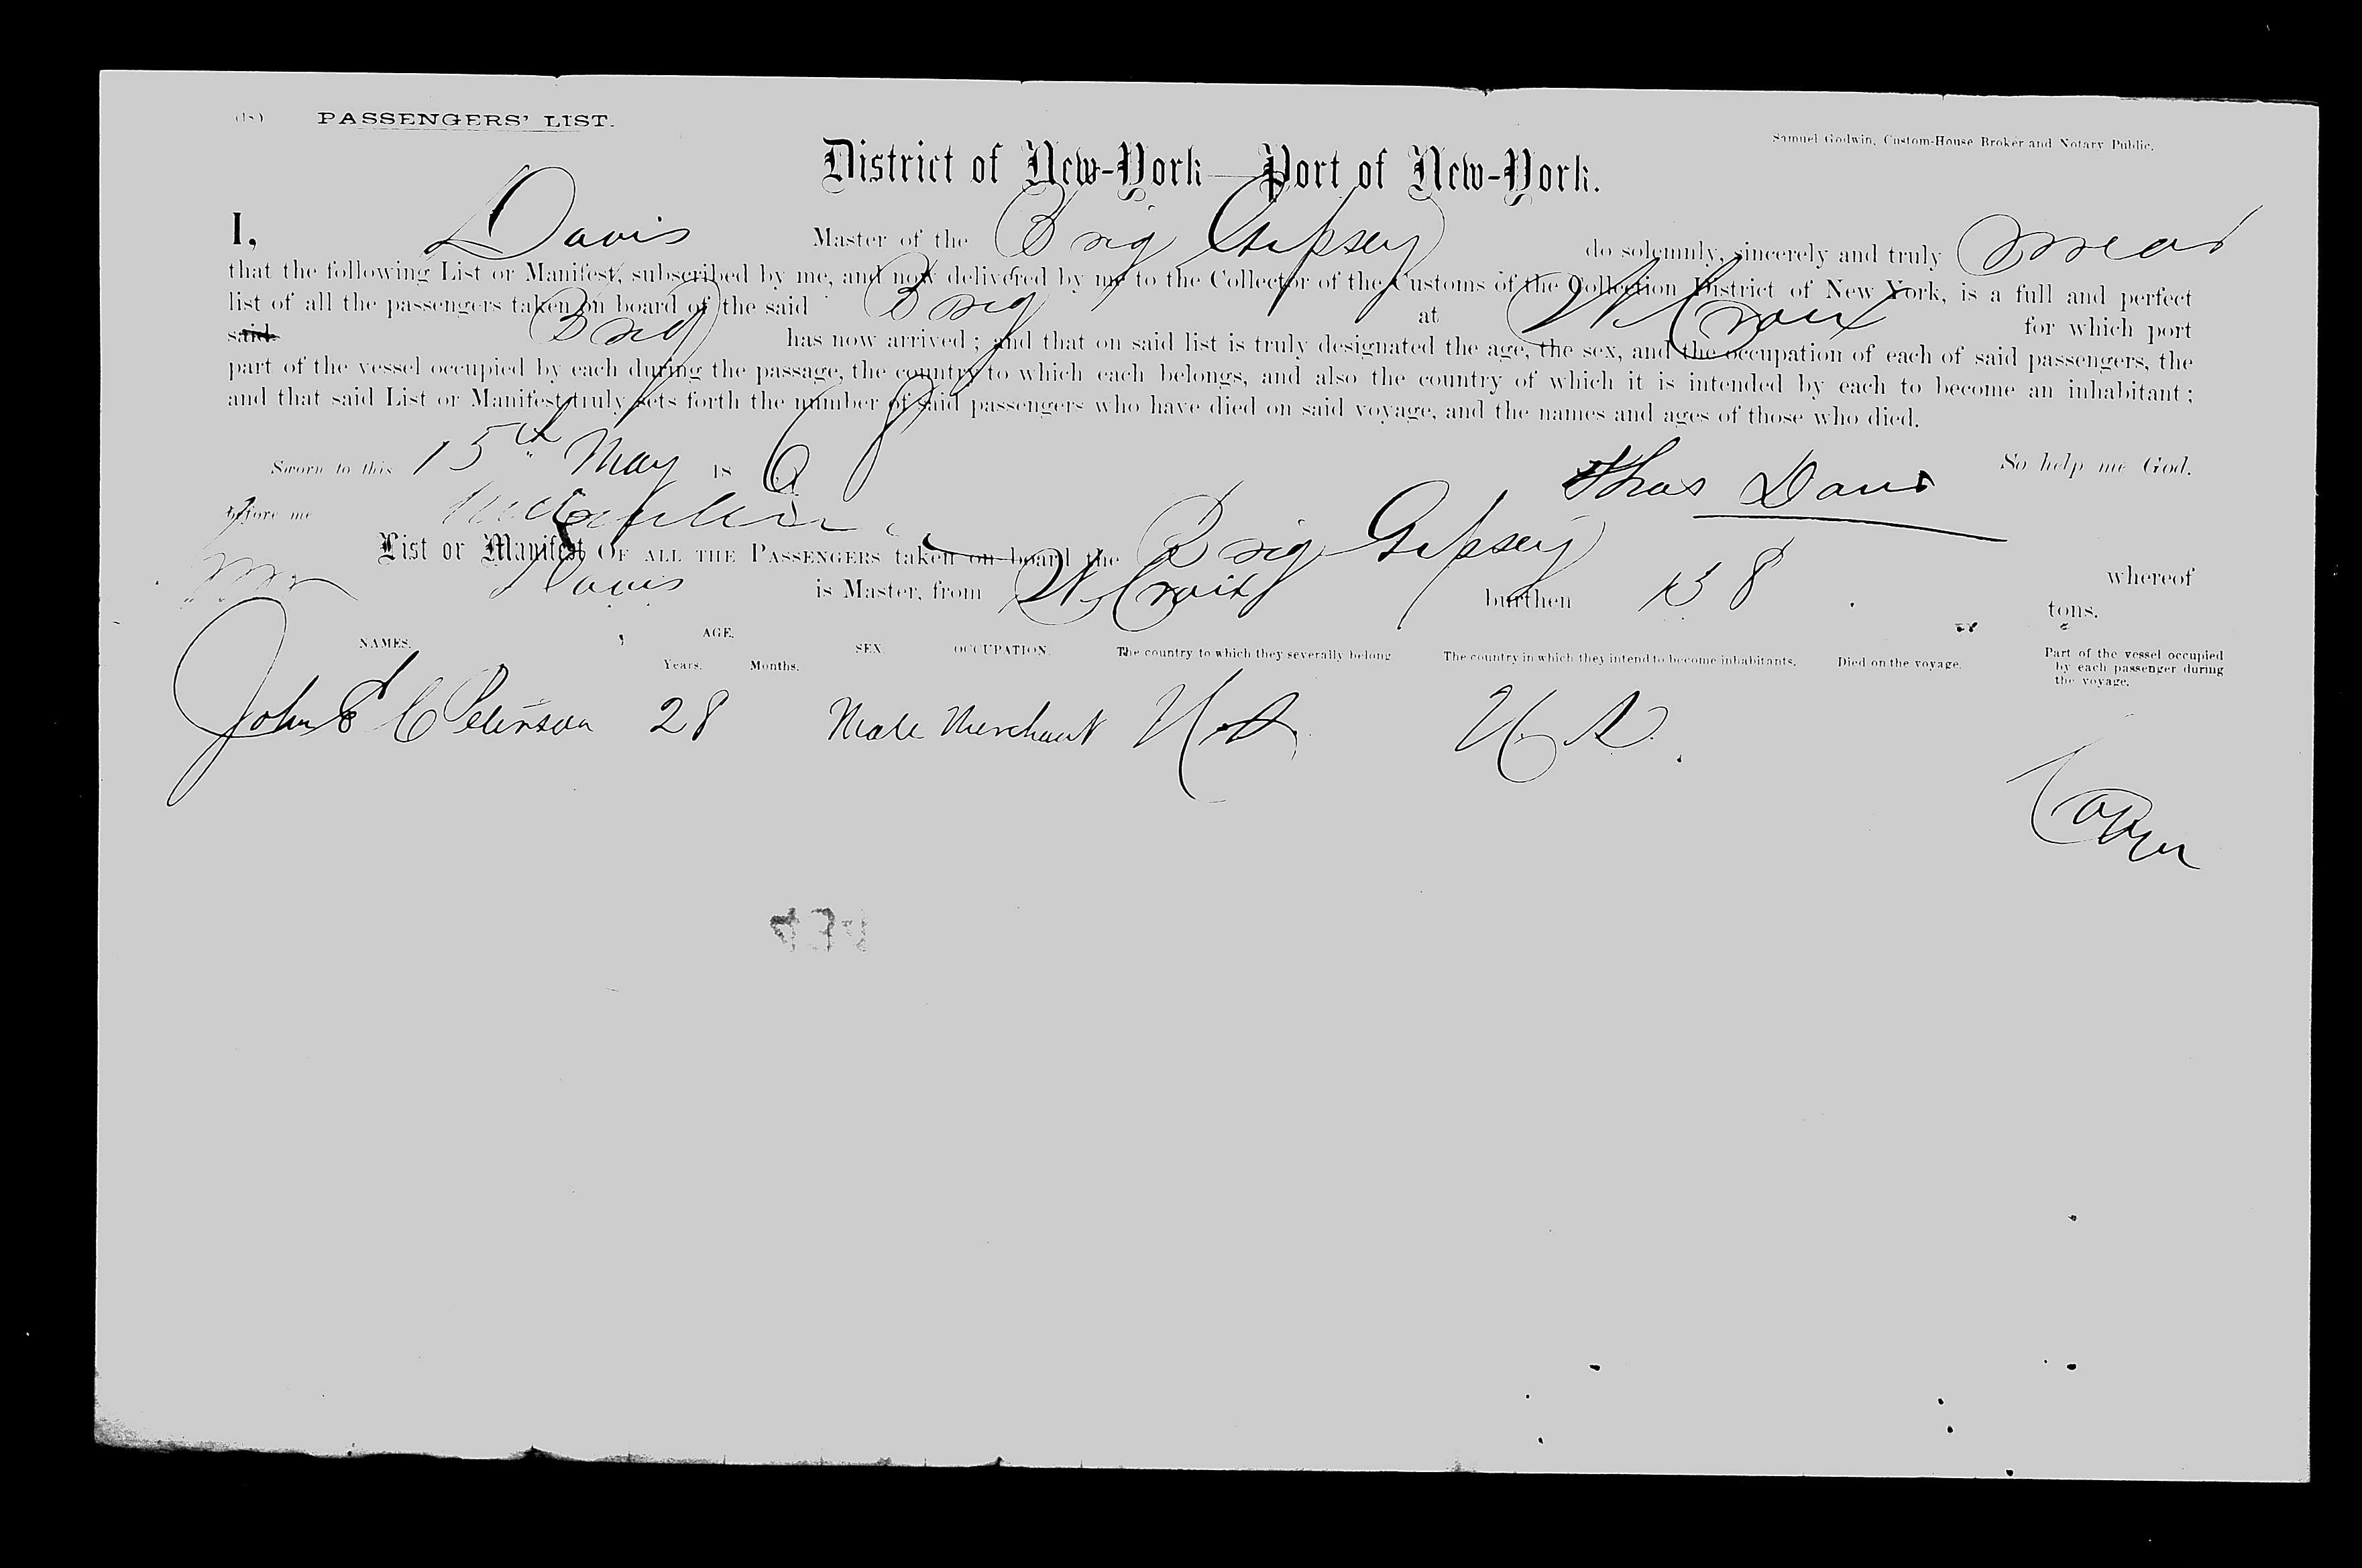 (18) PASSENGERS' LIST.
Samuel Godwin, Custom-House Broker and Notary Public.
District of New-York—Port of New-York.
I, Davis Master of the Brig Gipsey do solemnly, sincerely and truly swear
that the following List or Manifest, subscribed by me, and now delivered by me to the Collector of the Customs of the Collection District of New York, is a full and perfect
list of all the passengers taken on board of the said Brig at St Croix for which port
said Brig has now arrived; and that on said list is truly designated the age, the sex, and the occupation of each of said passengers, the
part of the vessel occupied by each during the passage, the country to which each belongs, and also the country of which it is intended by each to become an inhabitant;
and that said List or Manifest truly sets forth the number of said passengers who have died on said voyage, and the names and ages of those who died.
Sworn to this 15th May 18 So help me God.
Thos Davis
before me
List or Manifest OF ALL THE PASSENGERS taken on board the Brig Gipsey whereof
Davis is Master, from St Croix burthen 138 tons.
NAMES. AGE. Years. Months. SEX. OCCUPATION. The country to which they severally belong The country in which they intend to become inhabitants. Died on the voyage. Part of the vessel occupied by each passenger during the voyage.
John C Peterson 28 Male Merchant U S U S.
Cabin